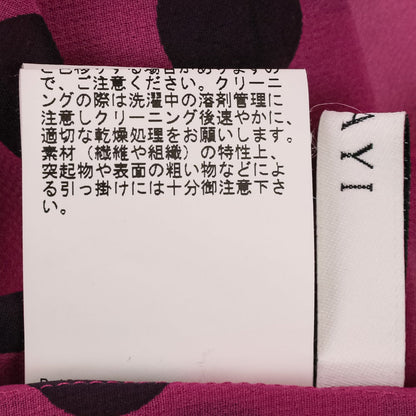 で、ご注意ください。クリーニ
ングの際は洗濯中の溶剤管理に
注意しクリーニング後速やかに、
適切な乾燥処理をお願いします。
素材（繊維や組織）の特性上、
突起物や表面の粗い物などによ
る引っ掛けには十分御注意下さ
い。
AYI